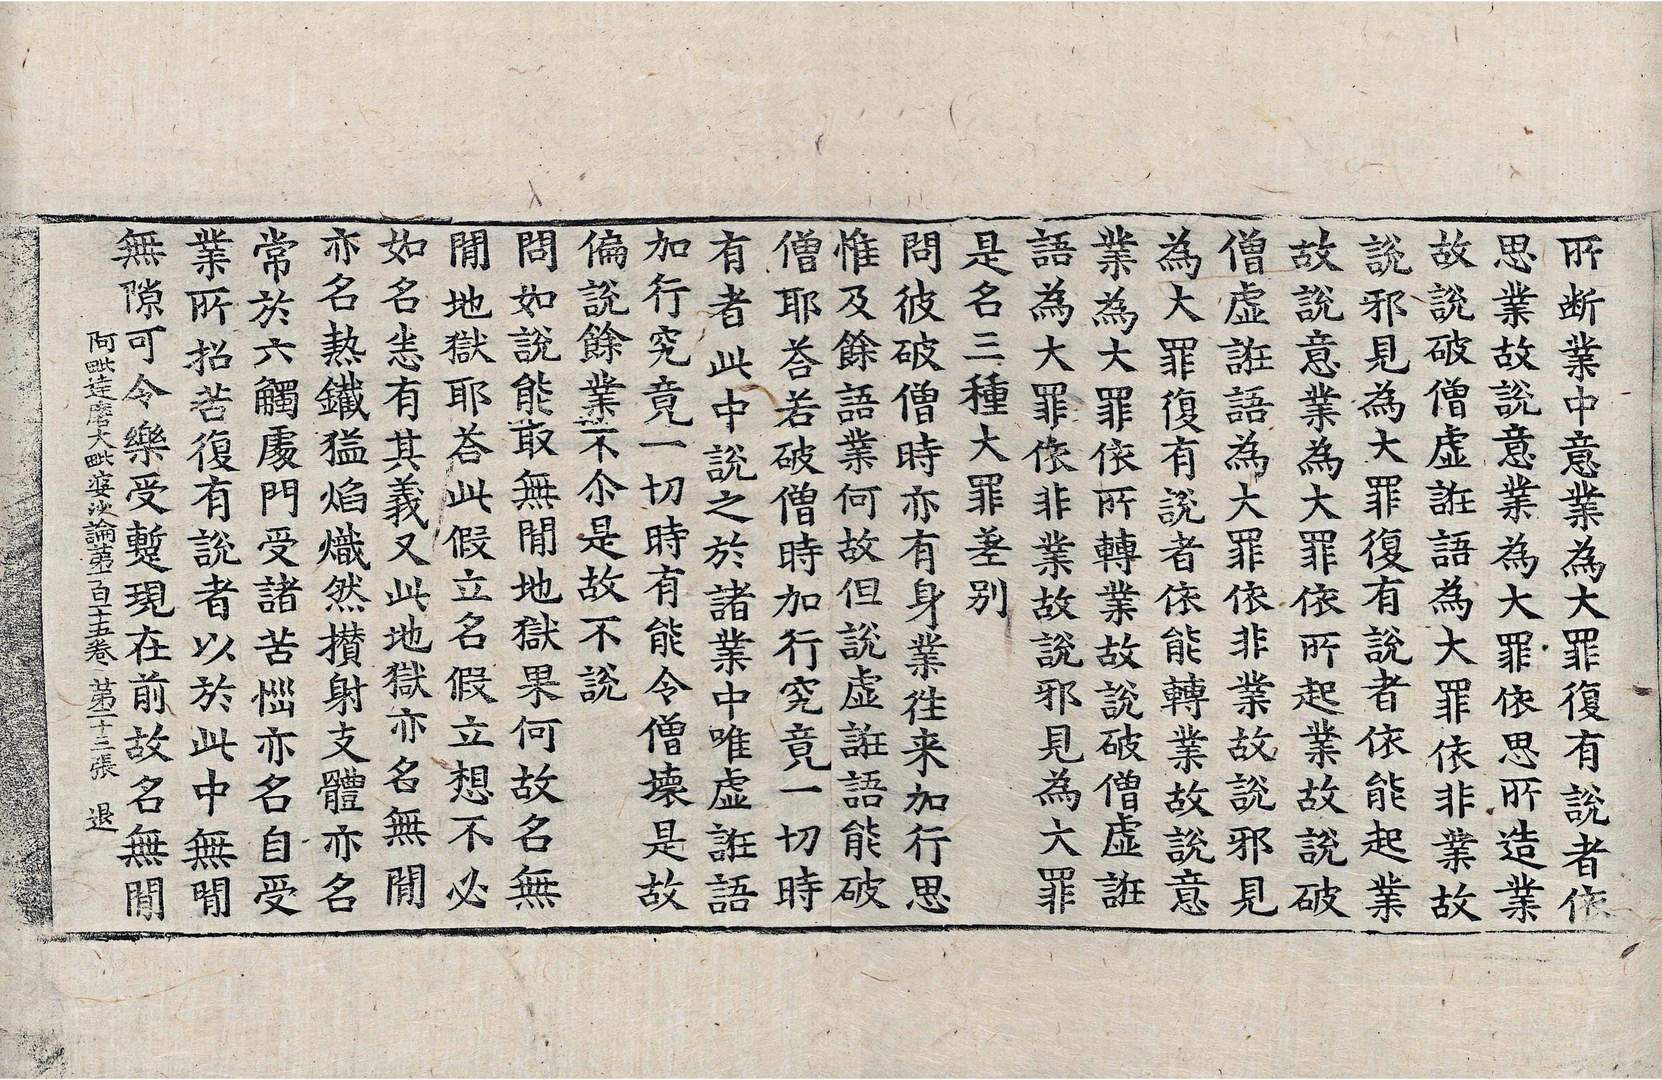 所断業中意業為大罪復有說者依
思業故說意業為大罪依思所造業
故說破僧虛誑語為大罪依非業故
說邪見為大罪復有說者依能起業
故說意業為大罪依所起業故說破
僧虛誑語為大罪依非業故說邪見
為大罪復有說者依能轉業故說意
業為大罪依所轉業故說破僧虛誑
語為大罪依非業故說邪見為大罪
是名三種大罪差别
問彼破僧時亦有身業往来加行思
惟及餘語業何故但說虛誑語能破
僧耶荅若破僧時加行究竟一切時
有者此中說之於諸業中唯虛誑語
加行究竟一切時有能令僧壊是故
偏說餘業不尒是故不說
問如說能取無間地獄果何故名無
間地獄耶荅此假立名假立想不必
如名悉有其義又此地獄亦名無間
亦名熱鐵猛焰熾然攢射支體亦名
常於六觸處門受諸苦惱亦名自受
業所招苦復有說者以於此中無間
無隙可令樂受蹔現在前故名無間
阿毗達磨大毗婆沙論第一百一十五卷 第二十三張 退